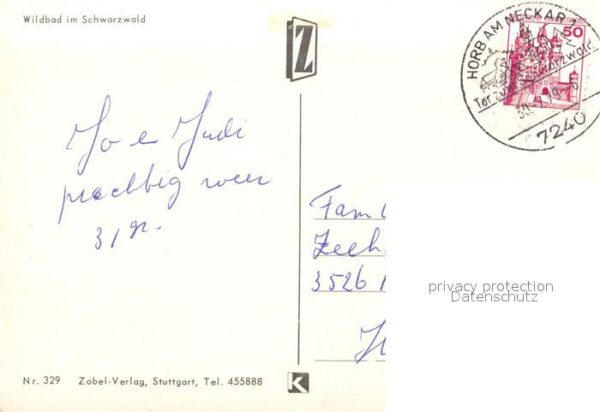 Wildbad im Schwarzwald
Z
50
HORB AM NECKAR 1
Tor zum Schwarzwald
7240
Jo e Judi
prachtig weer
Fam
Zeeh
3526
privacy protection
Datenschutz
Nr. 329 Zobel-Verlag, Stuttgart, Tel. 455888
K